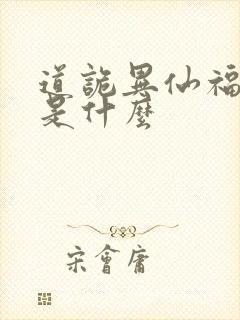 道詭異仙福
是什麼
宋會庸